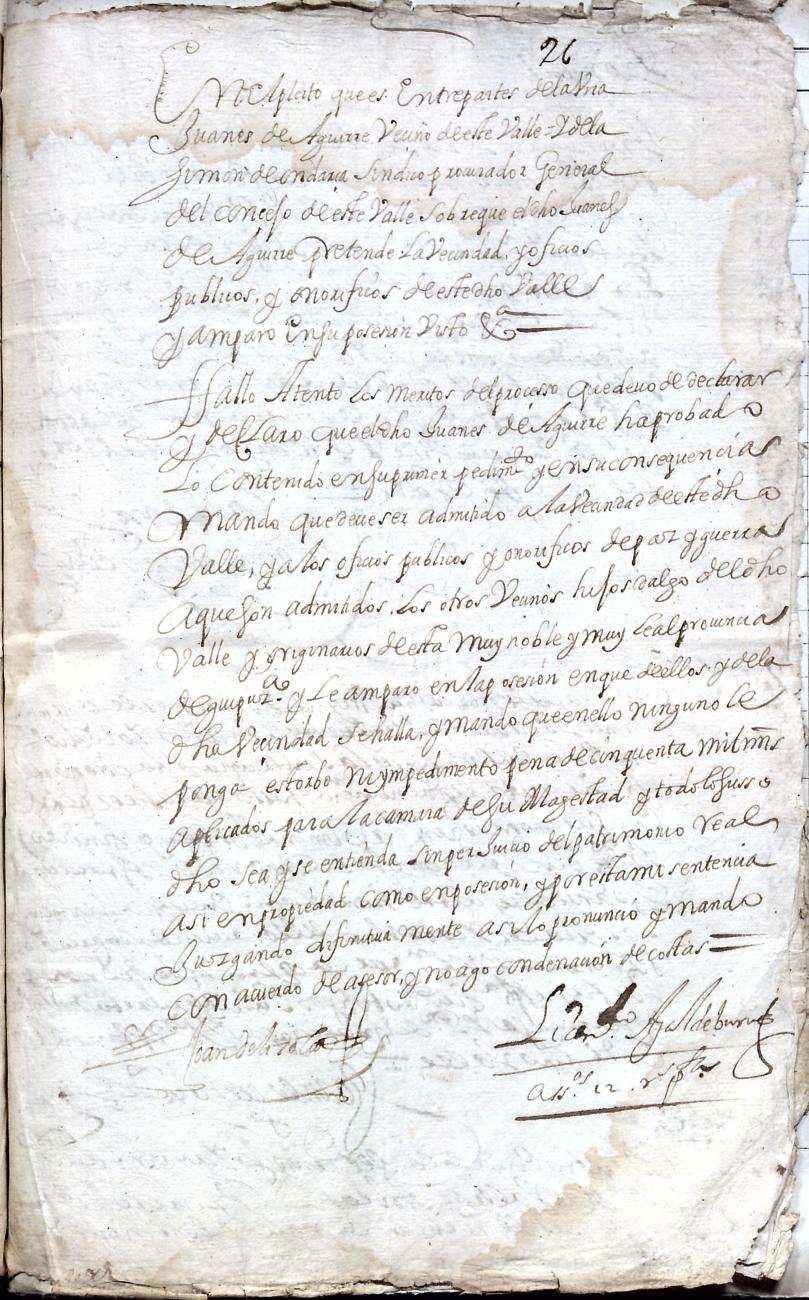 26
En el pleito que es Entre partes de la Una
Juanes de Aguirre Vecino de este Valle Y de la
Simon de ondarra sindico procurador General
del concejo de este Valle sobre que el dho Juanes
de Aguirre pretende La Vecindad, y oficios
publicos, y onorificos de este dho Valle
y amparo En su posesion Visto &a
Ffallo Atento Los meritos del processo que devo de declarar
y declaro que el dho Juanes de Aguirre ha probado
Lo contenido en su primer pedimto y en su consequencia
Mando que deve ser admitido a la Vecindad de este dho
Valle, y a los oficios publicos y onorificos de paz y guerra
a que son admitidos Los otros Vecinos hijos dalgo del dho
Valle y originarios de esta Muy noble y muy Leal provincia
de guipuza y Le amparo en la posesion en que de ellos y de la
dha Vecindad se halla, y mando que en ello ninguno le
ponga estorbo ny ympedimento pena de cinquenta mil mrs
aplicados para la camara de su Magestad y todo lo suso
dho sea y se entienda sin perjuicio del patrimonio real
asi en propiedad como en posesion, y por esta mi sentencia
Juzgando difinitivamente asi lo pronuncio y mando
con acuerdo de asesor, y no ago condenacion de costas
Joan de
Licendo
assos 12 rs pta